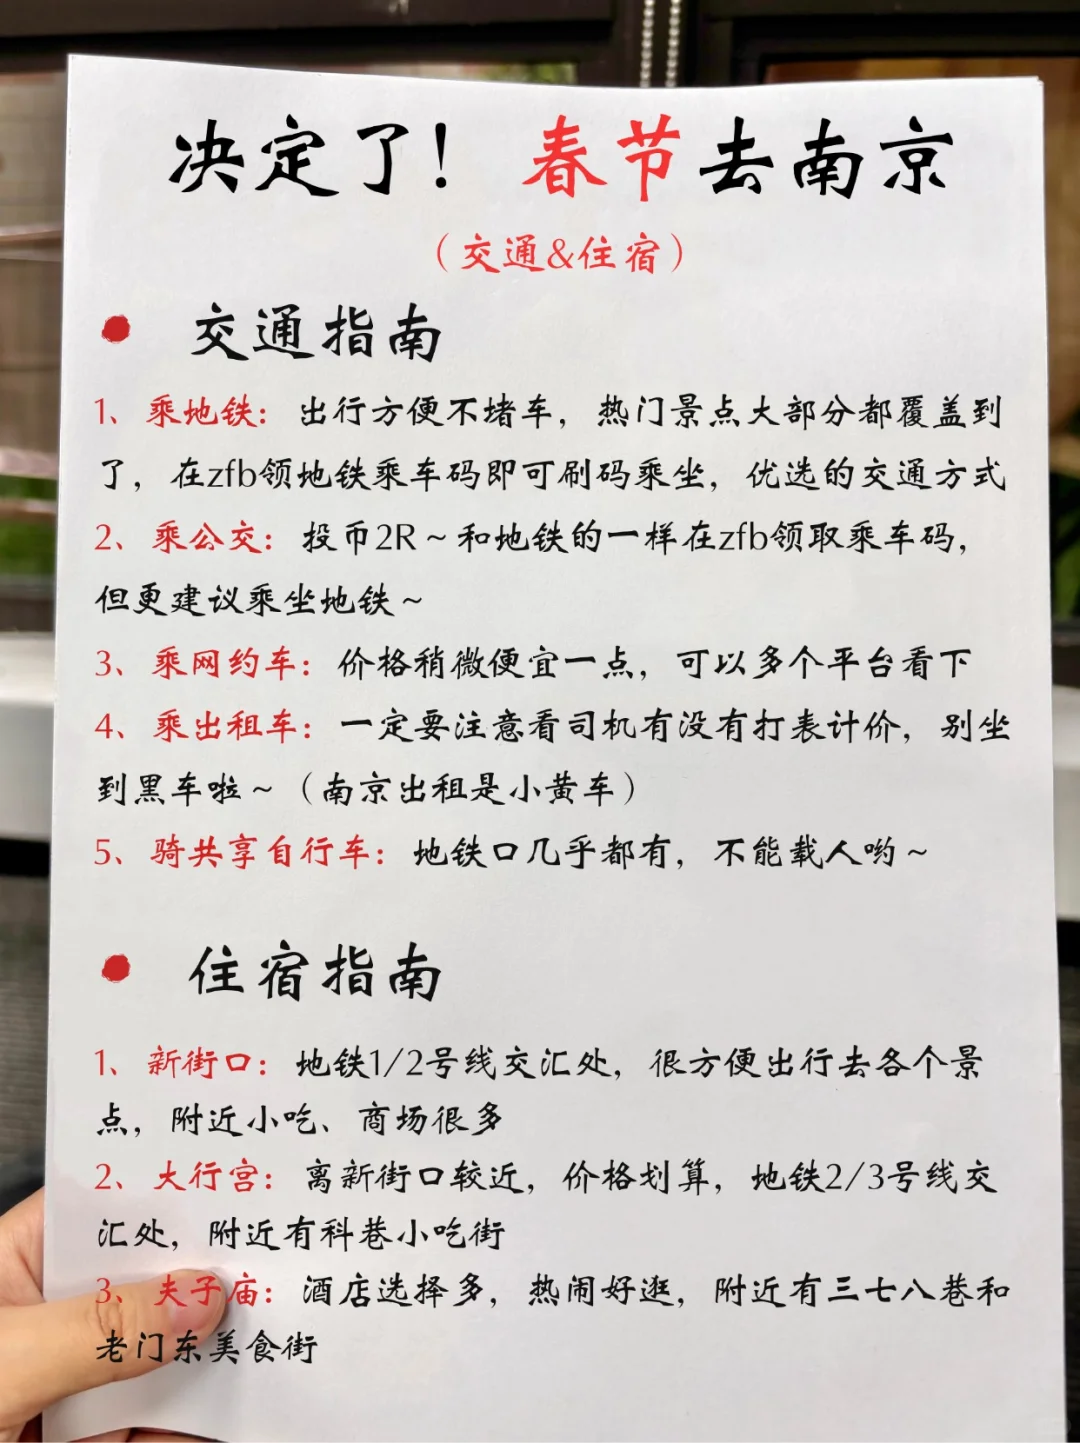 决定了！春节去南京
（交通&住宿）
交通指南
1、乘地铁：出行方便不堵车，热门景点大部分都覆盖到
了，在zfb领地铁乘车码即可刷码乘坐，优选的交通方式
2、乘公交：投币2R～和地铁的一样在zfb领取乘车码，
但更建议乘坐地铁～
3、乘网约车：价格稍微便宜一点，可以多个平台看下
4、乘出租车：一定要注意看司机有没有打表计价，别坐
到黑车啦～（南京出租是小黄车）
5、骑共享自行车：地铁口几乎都有，不能载人哟～
住宿指南
1、新街口：地铁1/2号线交汇处，很方便出行去各个景
点，附近小吃、商场很多
2、大行宫：离新街口较近，价格划算，地铁2/3号线交
汇处，附近有科巷小吃街
3、夫子庙：酒店选择多，热闹好逛，附近有三七八巷和
老门东美食街